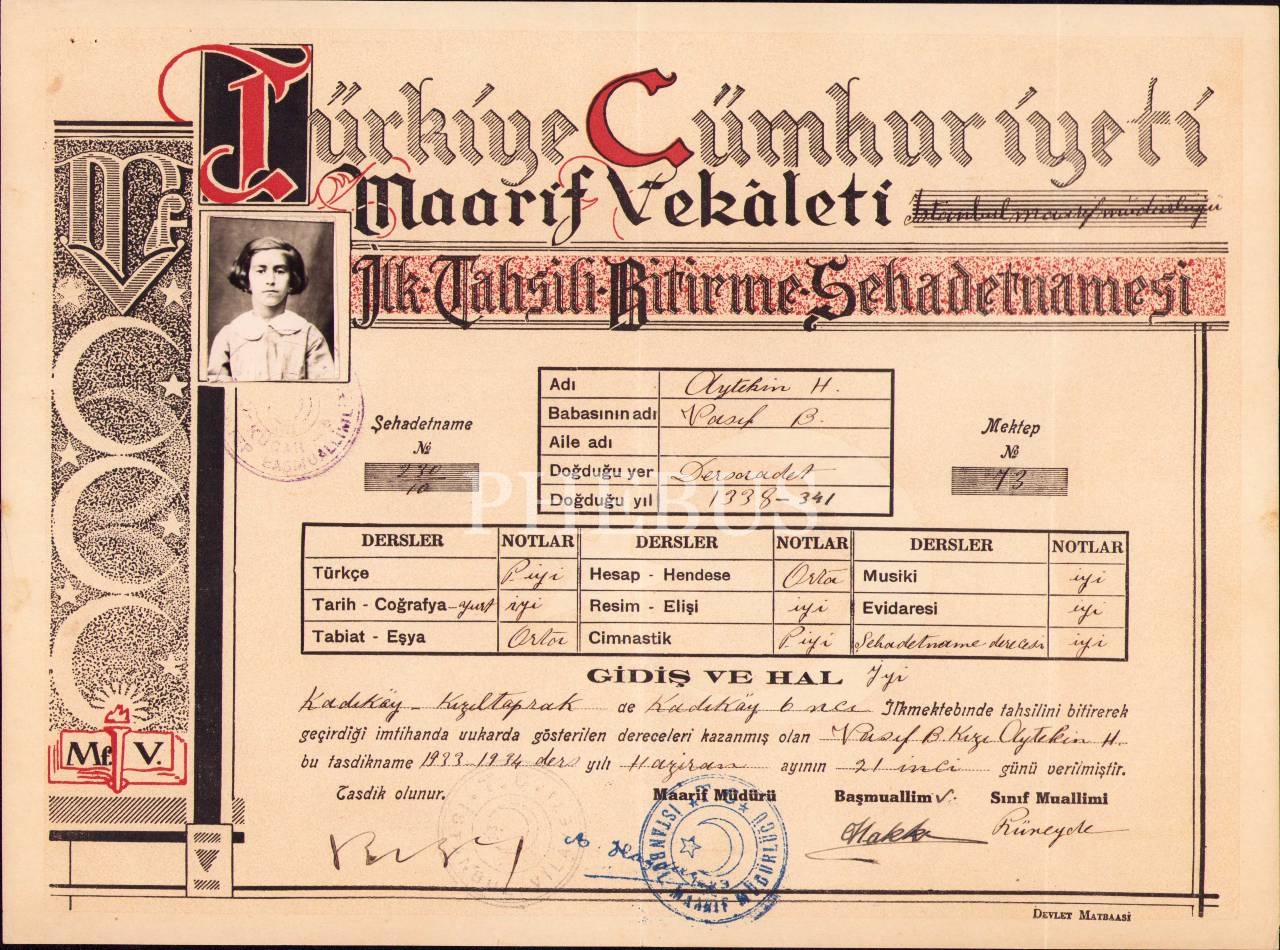 Türkiye Cümhuriyeti
Maarif Vekâleti İstanbul maarif müdürlüğü
İlk-Tahsili-Bitirme-Şehadetnamesi
Mf V
Adı Aytekin H.
Babasının adı Vasıf B.
Aile adı
Doğduğu yer Dersaadet
Doğduğu yıl 1338-341
Şehadetname
№
10
Mektep
№
13
PHEBUS
DERSLER NOTLAR DERSLER NOTLAR DERSLER NOTLAR
Türkçe P. iyi Hesap - Hendese Orta Musiki iyi
Tarih - Coğrafya - yurt iyi Resim - Elişi iyi Evidaresi iyi
Tabiat - Eşya Orta Cimnastik P. iyi Şehadetname derecesi iyi
GİDİŞ VE HAL İyi
Kadıköy - Kızıltoprak de Kadıköy 6 ncı İlkmektebinde tahsilini bitirerek
geçirdiği imtihanda yukarda gösterilen dereceleri kazanmış olan Vasıf B. Kızı Aytekin H.
bu tasdikname 1933-1934 ders yılı Haziran ayının 21 inci günü verilmiştir.
Tasdik olunur. Maarif Müdürü Başmuallim V. Sınıf Muallimi
Hakkı
T.C.
İSTANBUL MAARİF MÜDÜRLÜĞÜ
Mf. V.
DEVLET MATBAASI